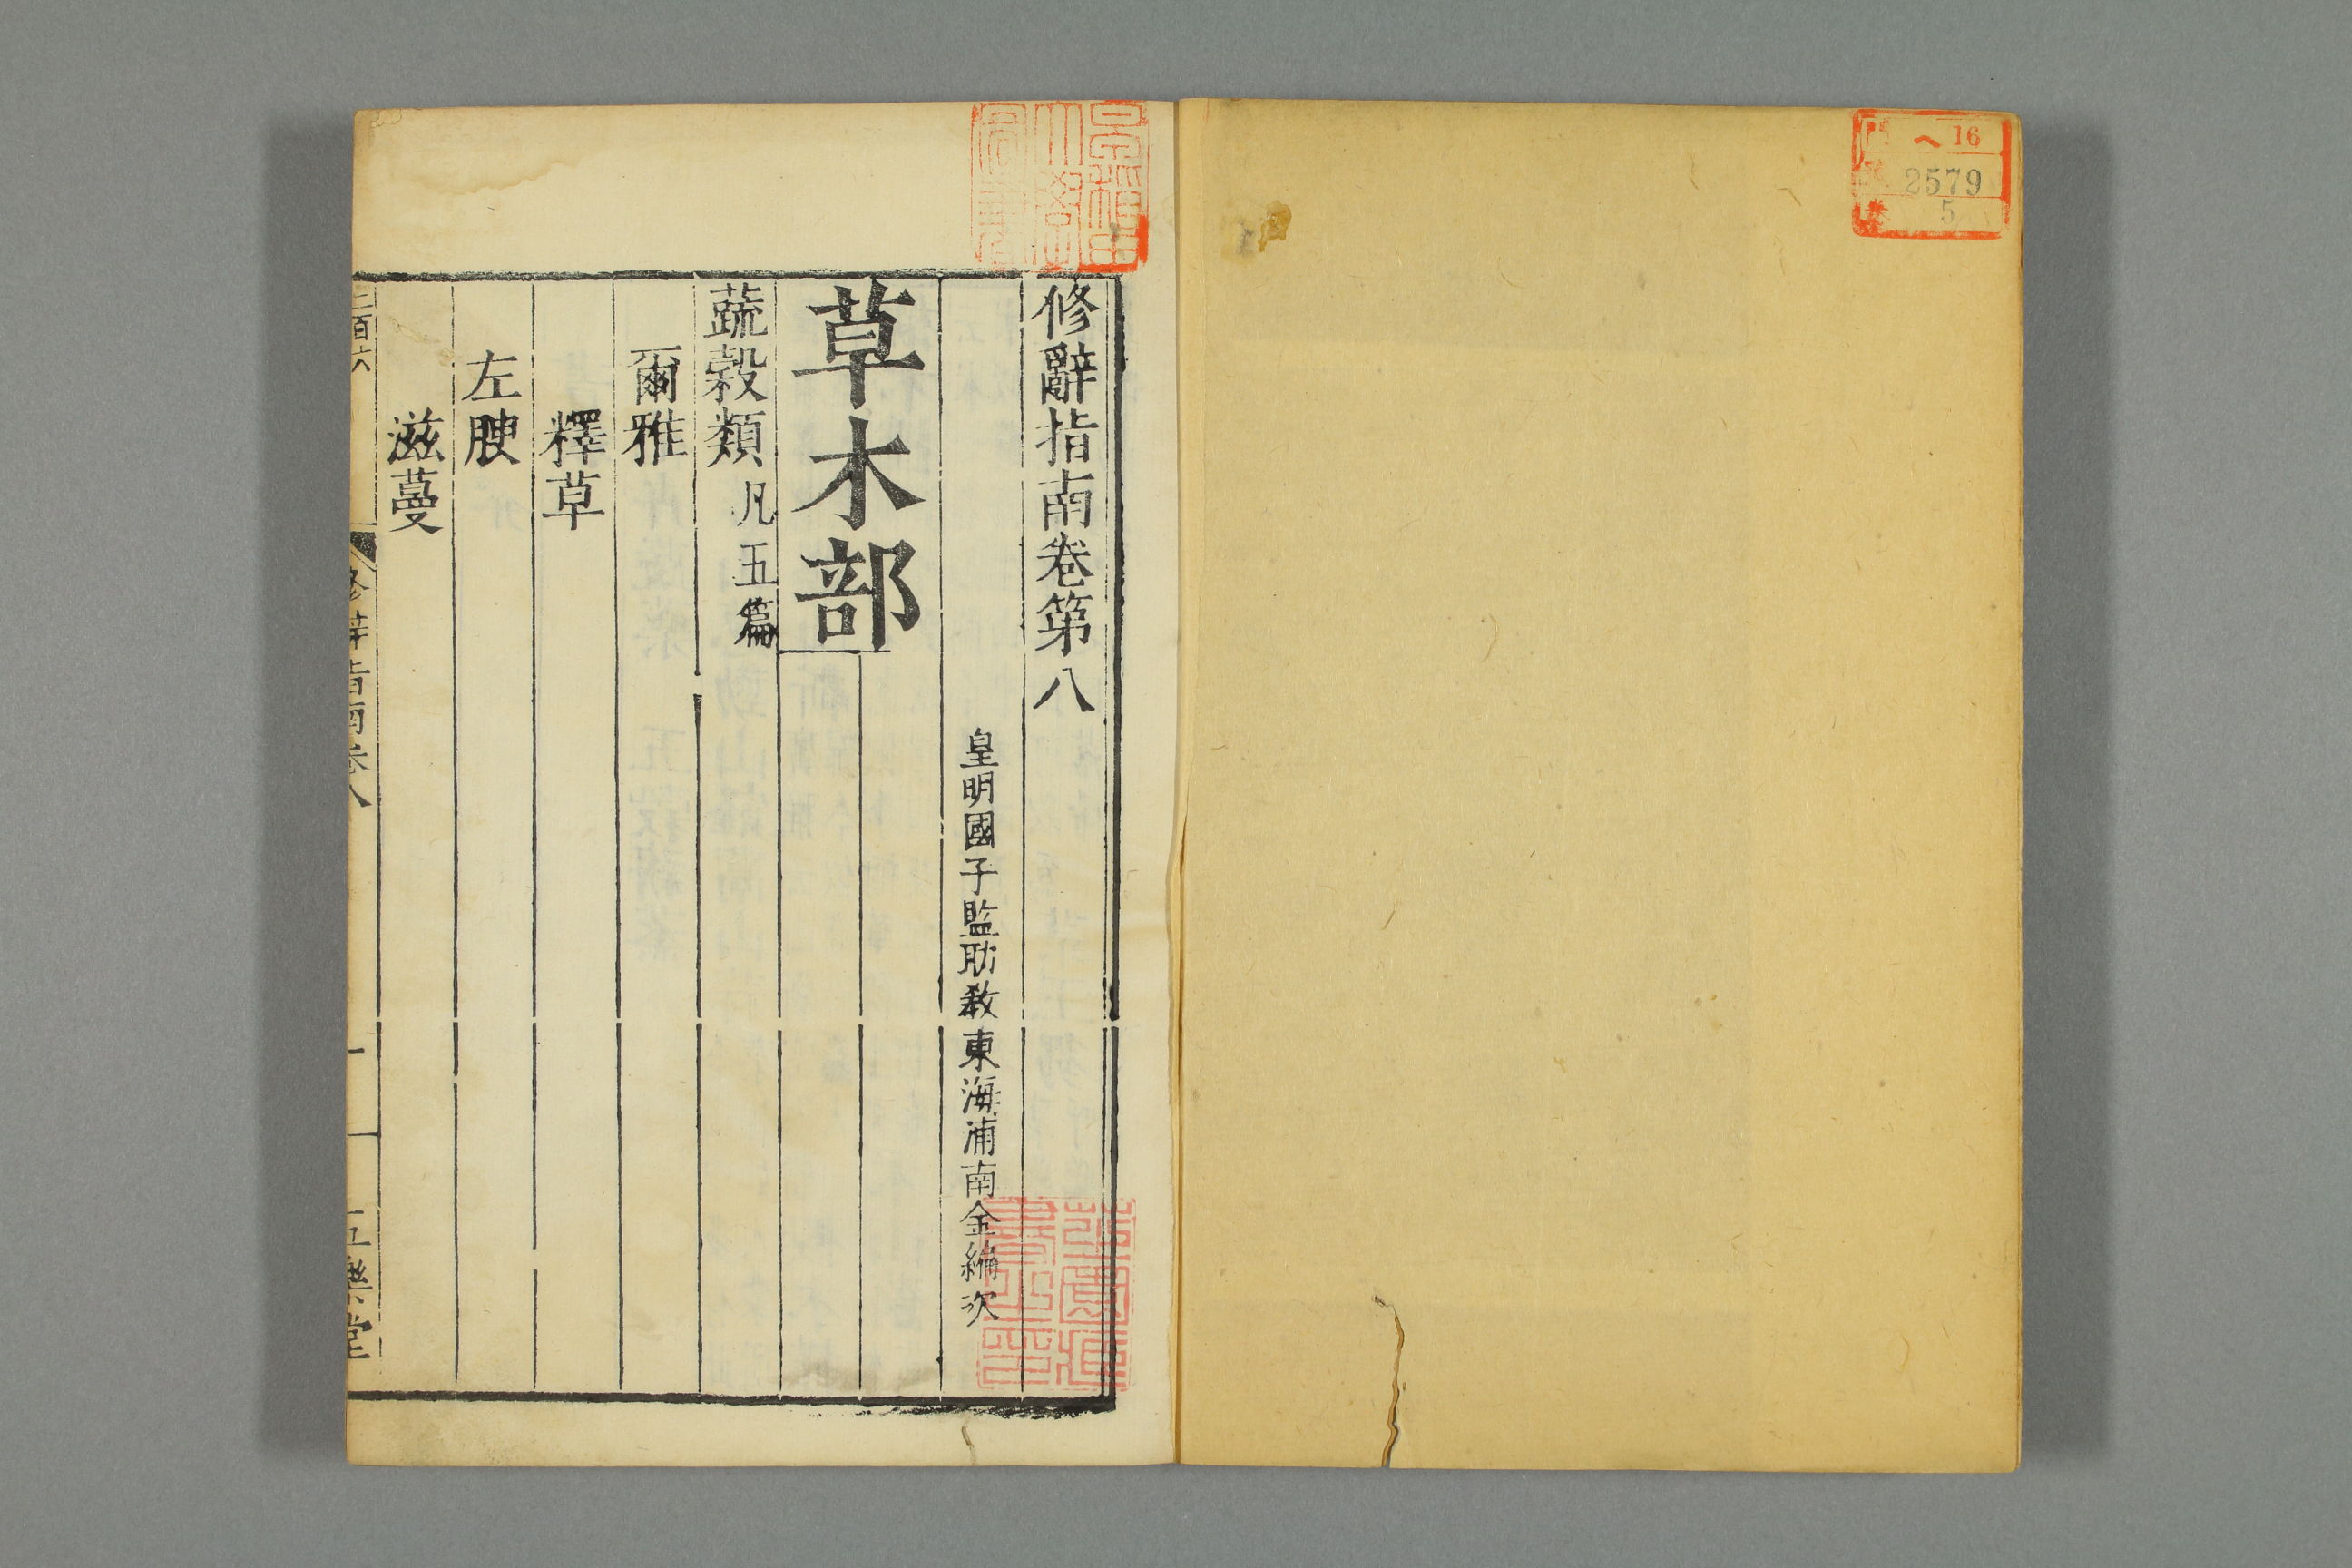 ヘ 16
2579
5
修辭指南卷第八
皇明國子監助教東海浦南金編次
草木部
蔬穀類 凡五篇
爾雅
釋草
左腴
滋蔓
修辭指南卷八
一
五樂堂